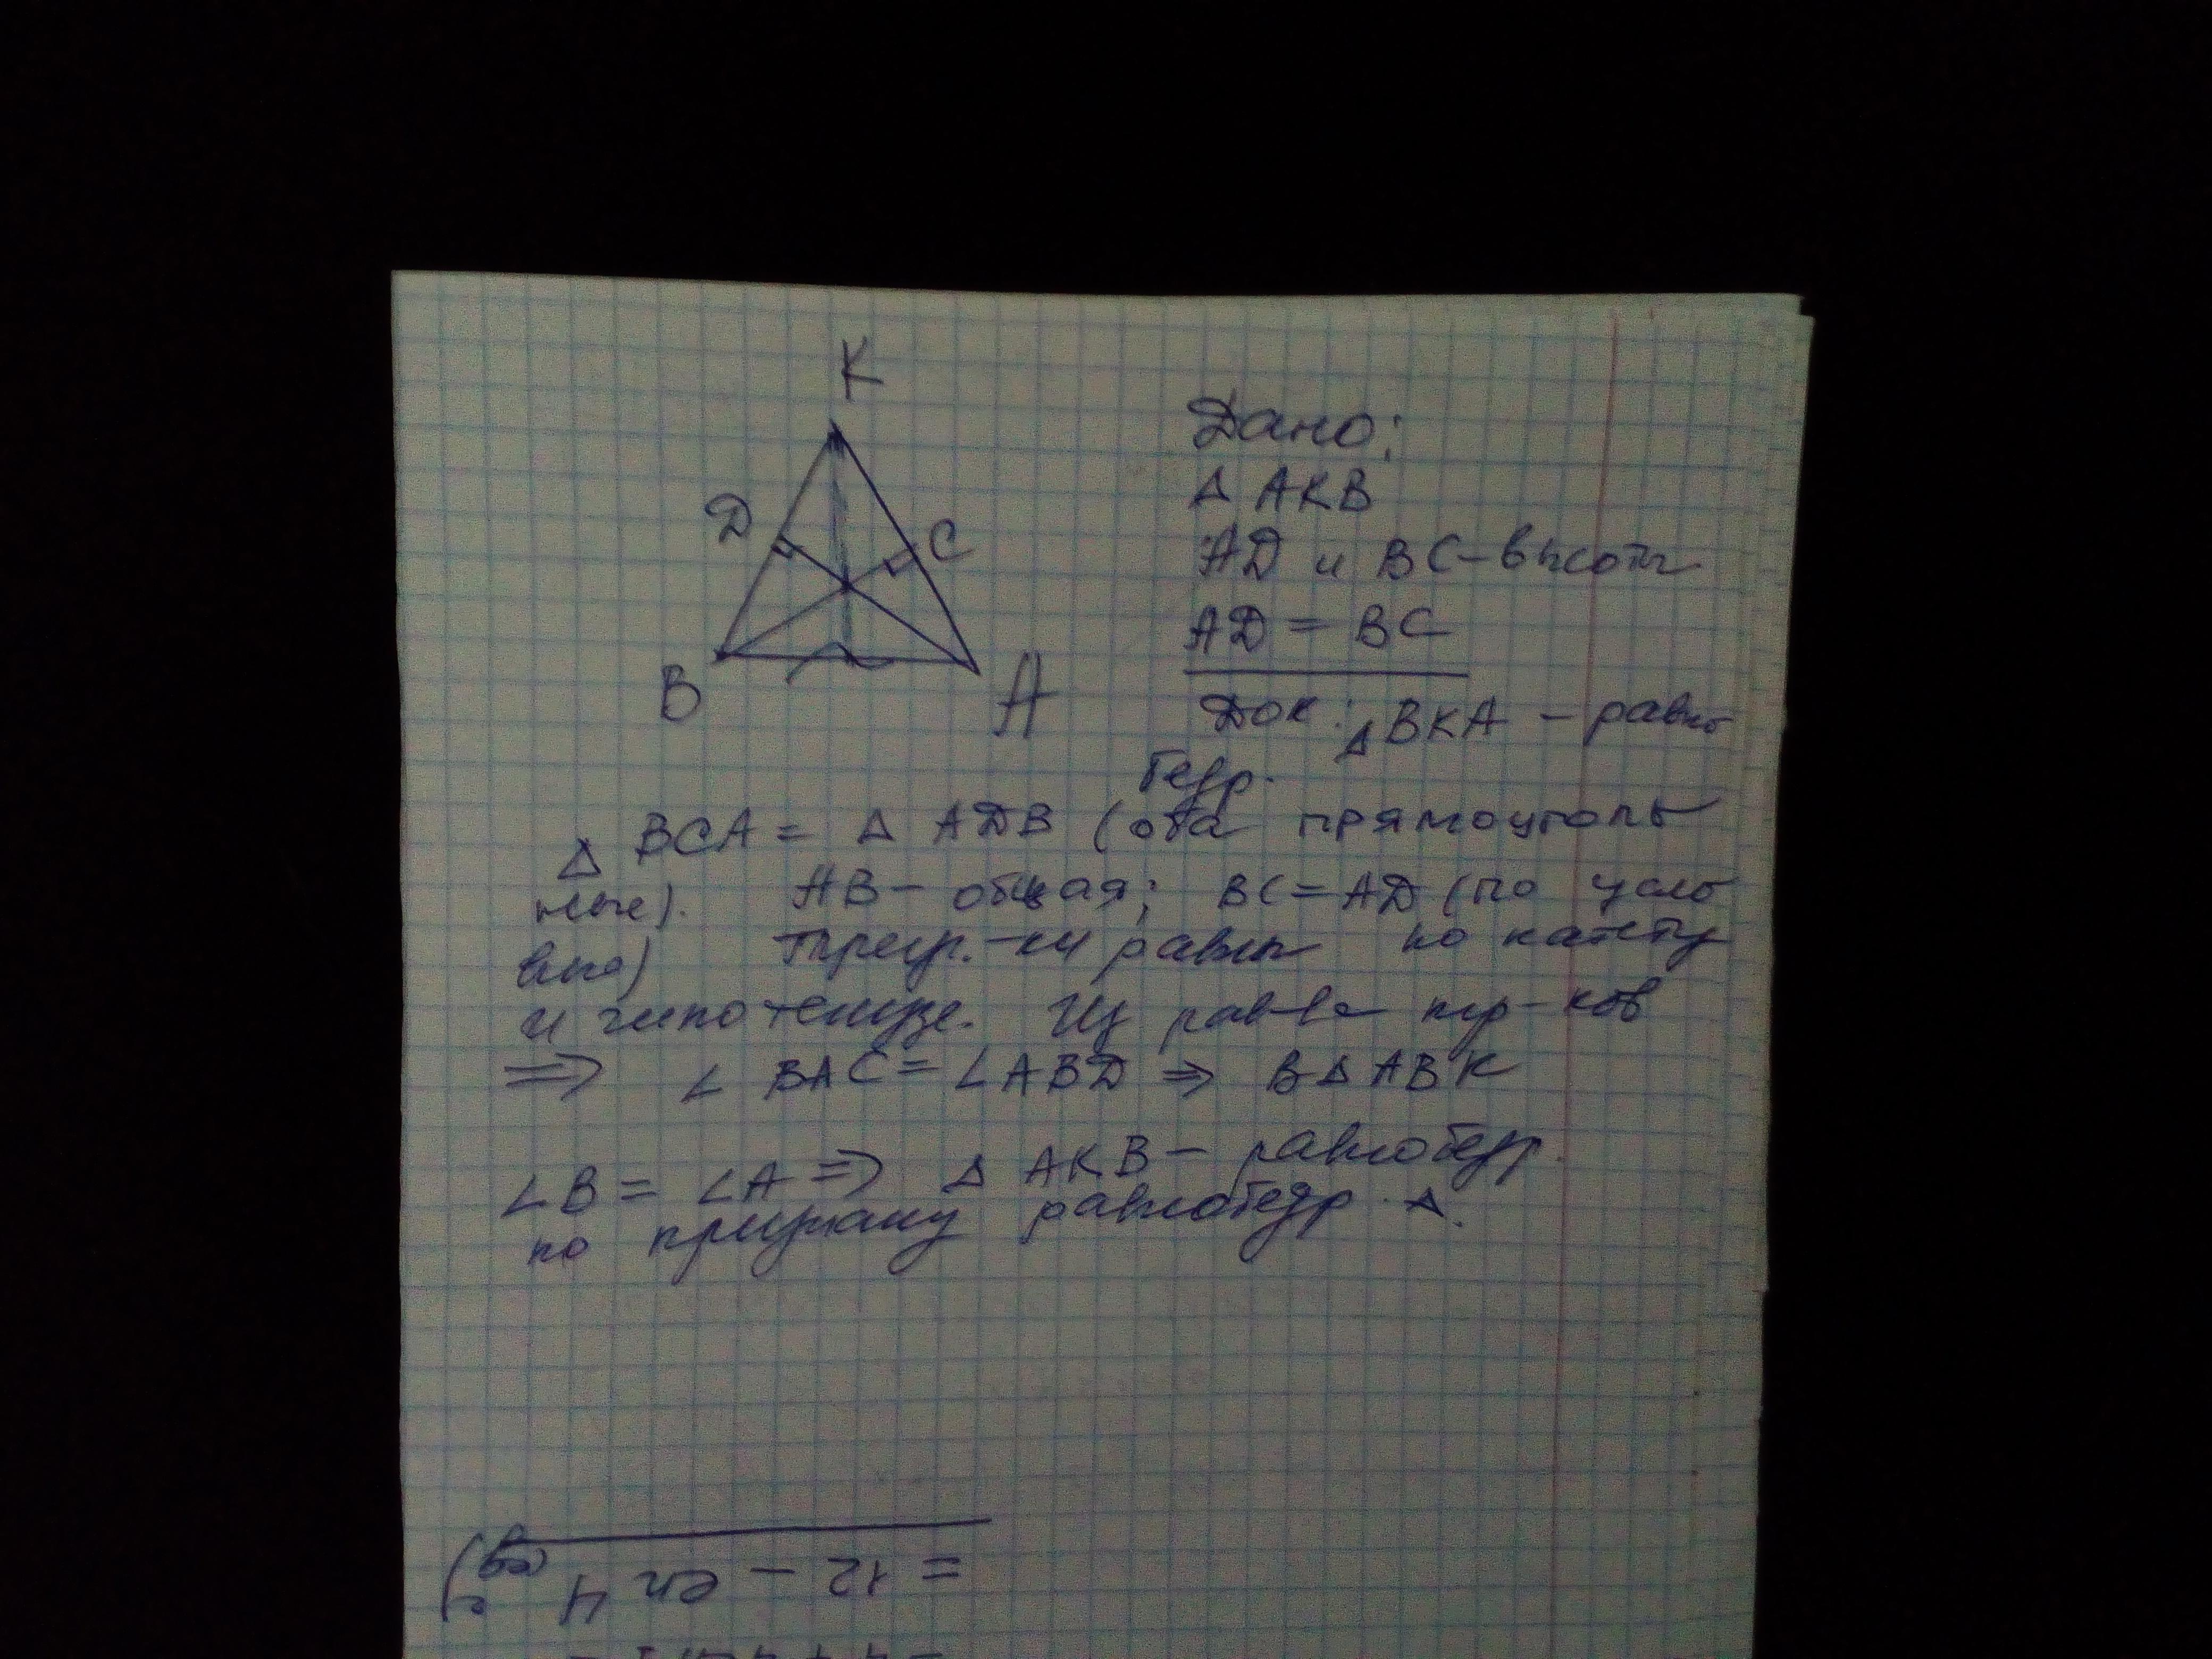 K
Дано:
Δ AKB
D
C
AD и BC - высоты
AD = BC
B
A
Док: Δ BKA - равно
бедр.
Δ BCA = Δ ADB (оба прямоуголь
ные). AB - общая; BC = AD (по усло
вию) треуг.-ки равны по катету
и гипотенузе. Из рав-ва тр-ков
⇒ ∠ BAC = ∠ ABD ⇒ В Δ ABK
∠B = ∠A ⇒ Δ AKB - равнобедр.
по признаку равнобедр. Δ.
= 12 - en 4